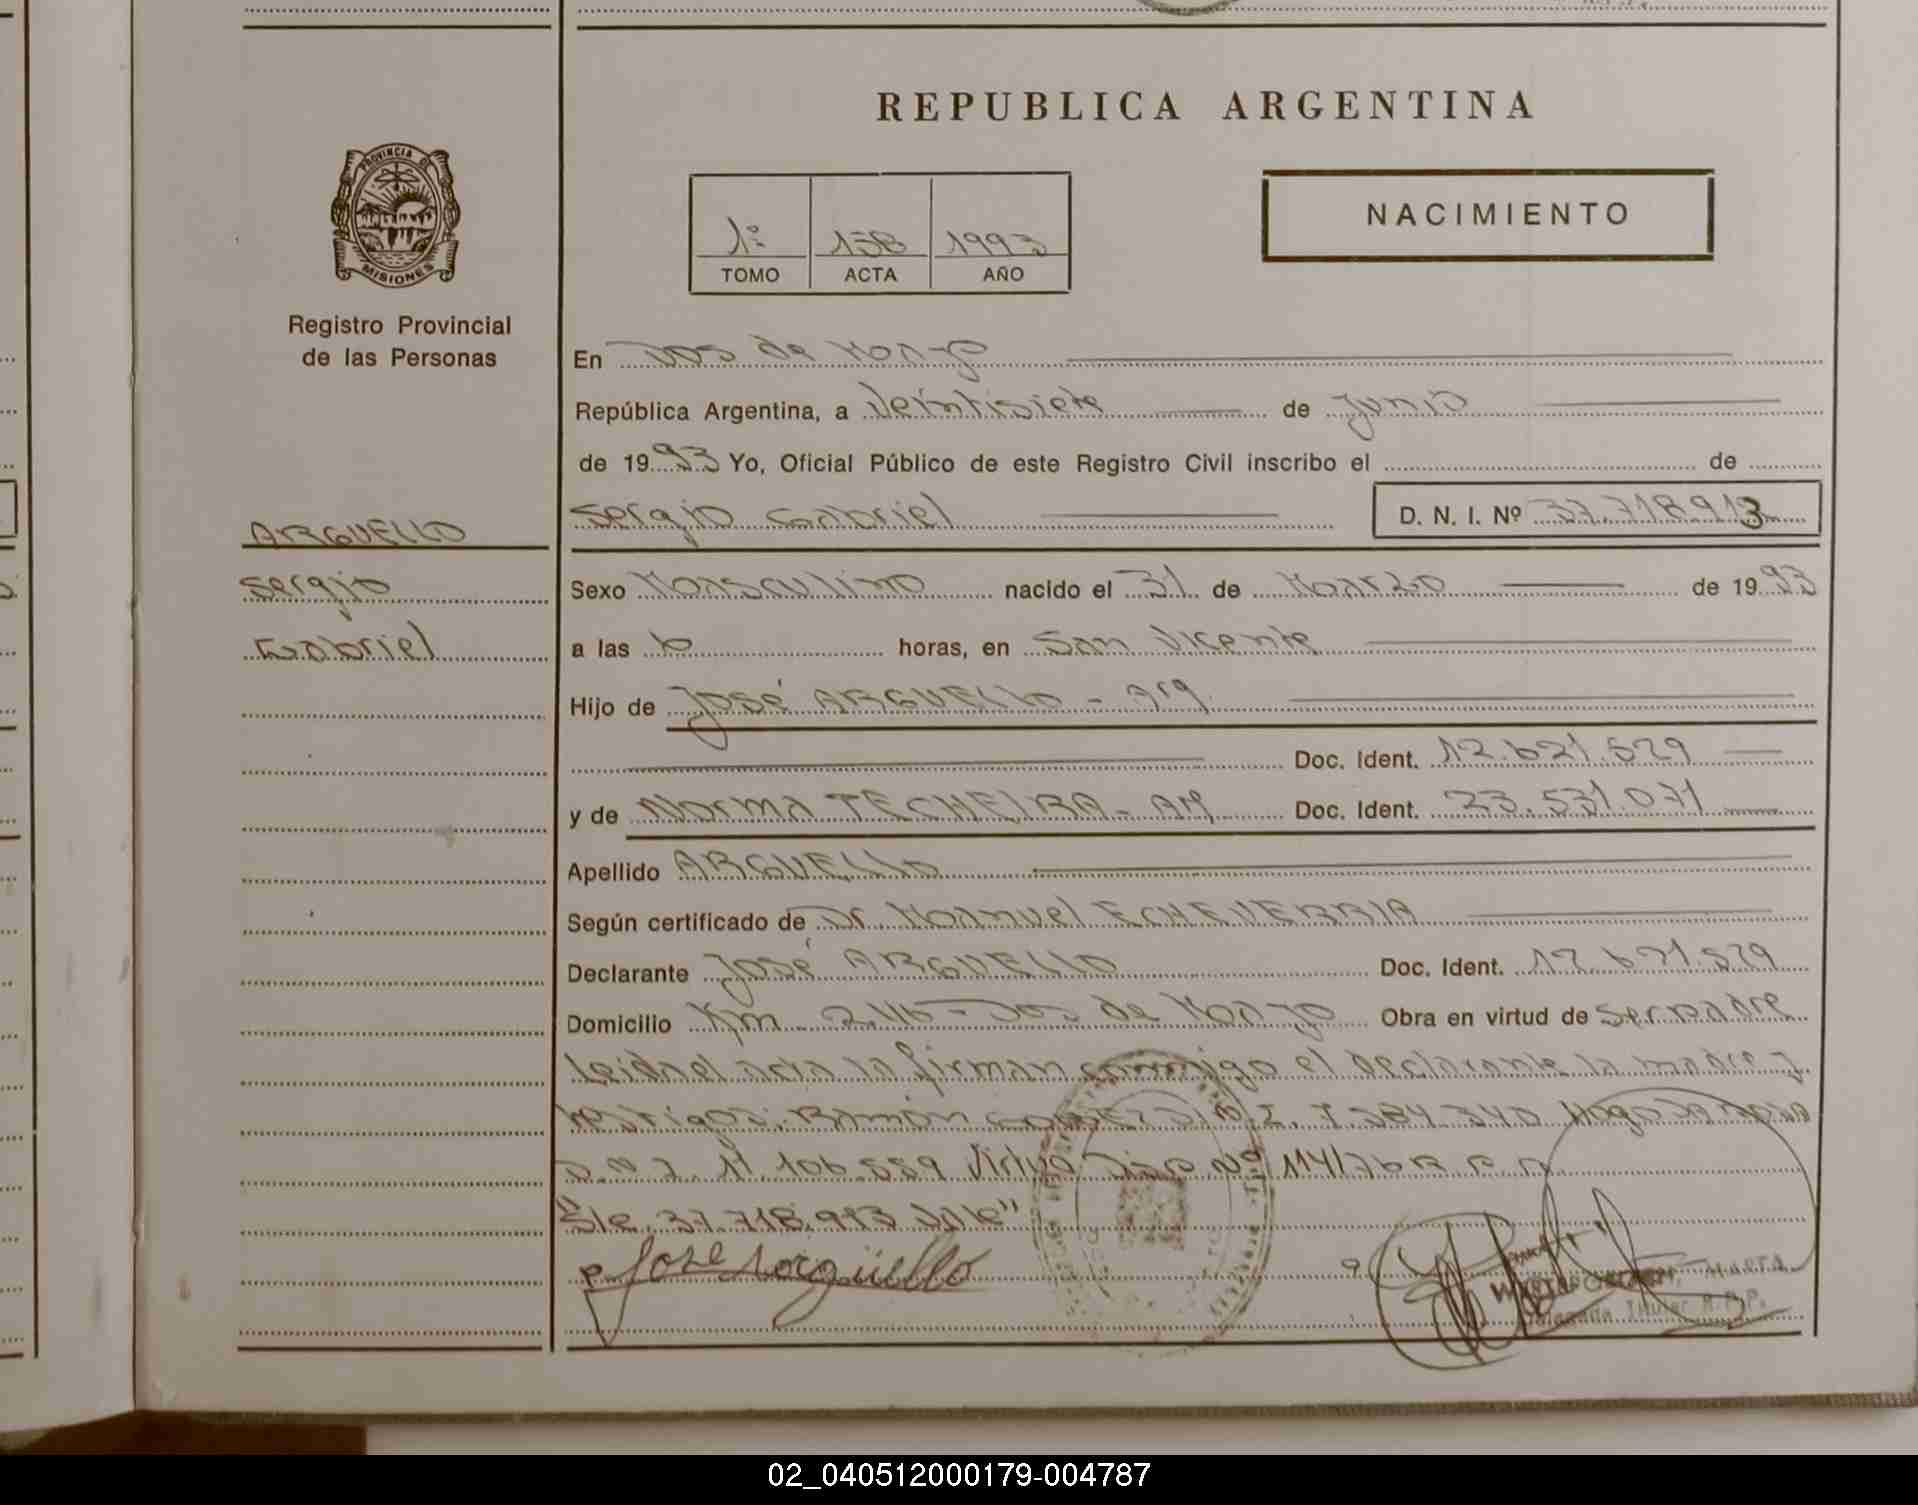 REPUBLICA ARGENTINA
PROVINCIA DE
MISIONES
Registro Provincial
de las Personas
1º 158 1993
TOMO ACTA AÑO
NACIMIENTO
En Dos de Mayo
República Argentina, a Veintisiete de Junio
de 1993 Yo, Oficial Público de este Registro Civil inscribo el de
Sergio Gabriel D. N. I. Nº 37.718.913
ARGUELLO
Sergio
Gabriel
Sexo Masculino nacido el 31 de Marzo de 1993
a las 6 horas, en San Vicente
Hijo de José ARGUELLO - Arg.
Doc. Ident. 12.621.529
y de Norma TECHEIRA - Arg Doc. Ident. 23.531.071
Apellido ARGUELLO
Según certificado de Dr. Manuel ECHEVERRIA
Declarante José ARGUELLO Doc. Ident. 12.621.529
Domicilio Km 246 - Dos de Mayo Obra en virtud de ser padre
Leida el acta la firman conmigo el declarante la madre y
testigos: Ramón 7.584.340 Hugo
D.N.I. 11.106.559 Virtud Disp Nº 114/76
"S/e. 37.718.913 Vale"
José Argüello
MARTA
Titular R.P.P.
02_040512000179-004787